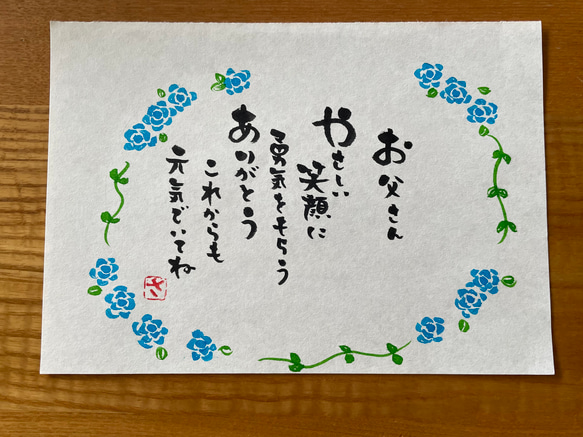 お父さん
やさしい
笑顔に
勇気をもらう
ありがとう
これからも
元気でいてね